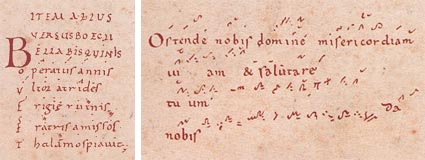 ITEM ALIUS
VERSUS BOETII
BELLA BIS QUINIS
operatus annis
vltor atrides
frigie ruinis
fratris amissos
thalamos piavit
Ostende nobis domine misericordiam
tu am & salutare
tu um da
nobis